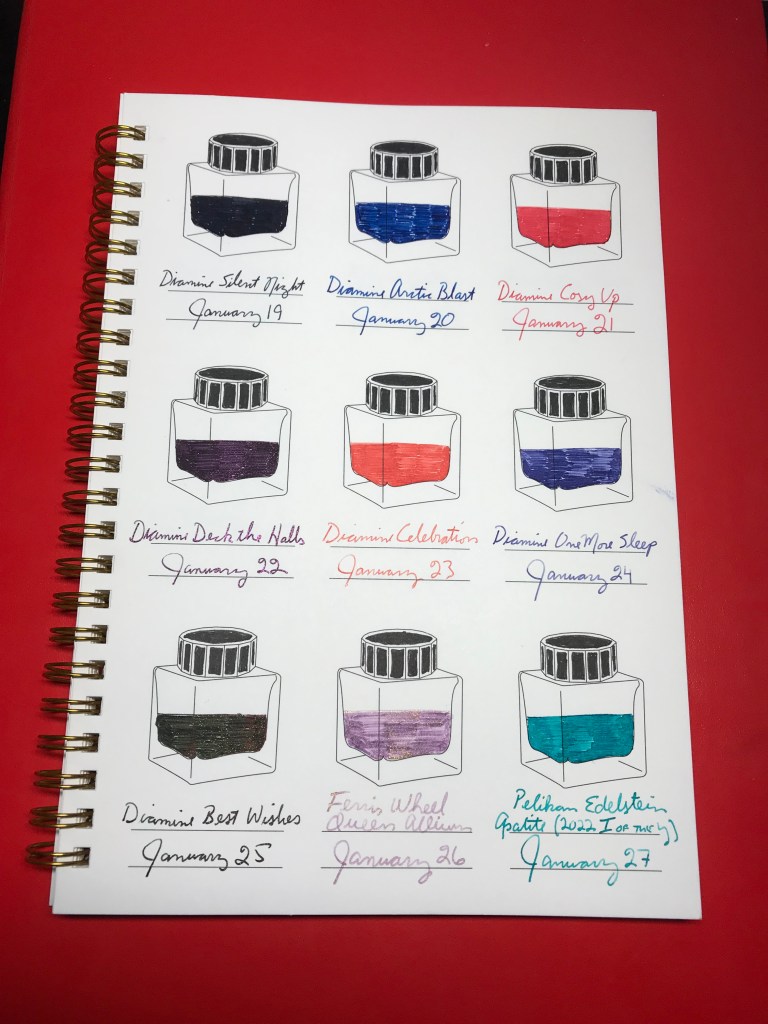 Diamine Silent Night
January 19
Diamine Arctic Blast
January 20
Diamine Cosy Up
January 21
Diamine Deck the Halls
January 22
Diamine Celebration
January 23
Diamine One More Sleep
January 24
Diamine Best Wishes
January 25
Ferris Wheel
Queen Allium
January 26
Pelikan Edelstein
Apatite (2022 I OF THE Y)
January 27